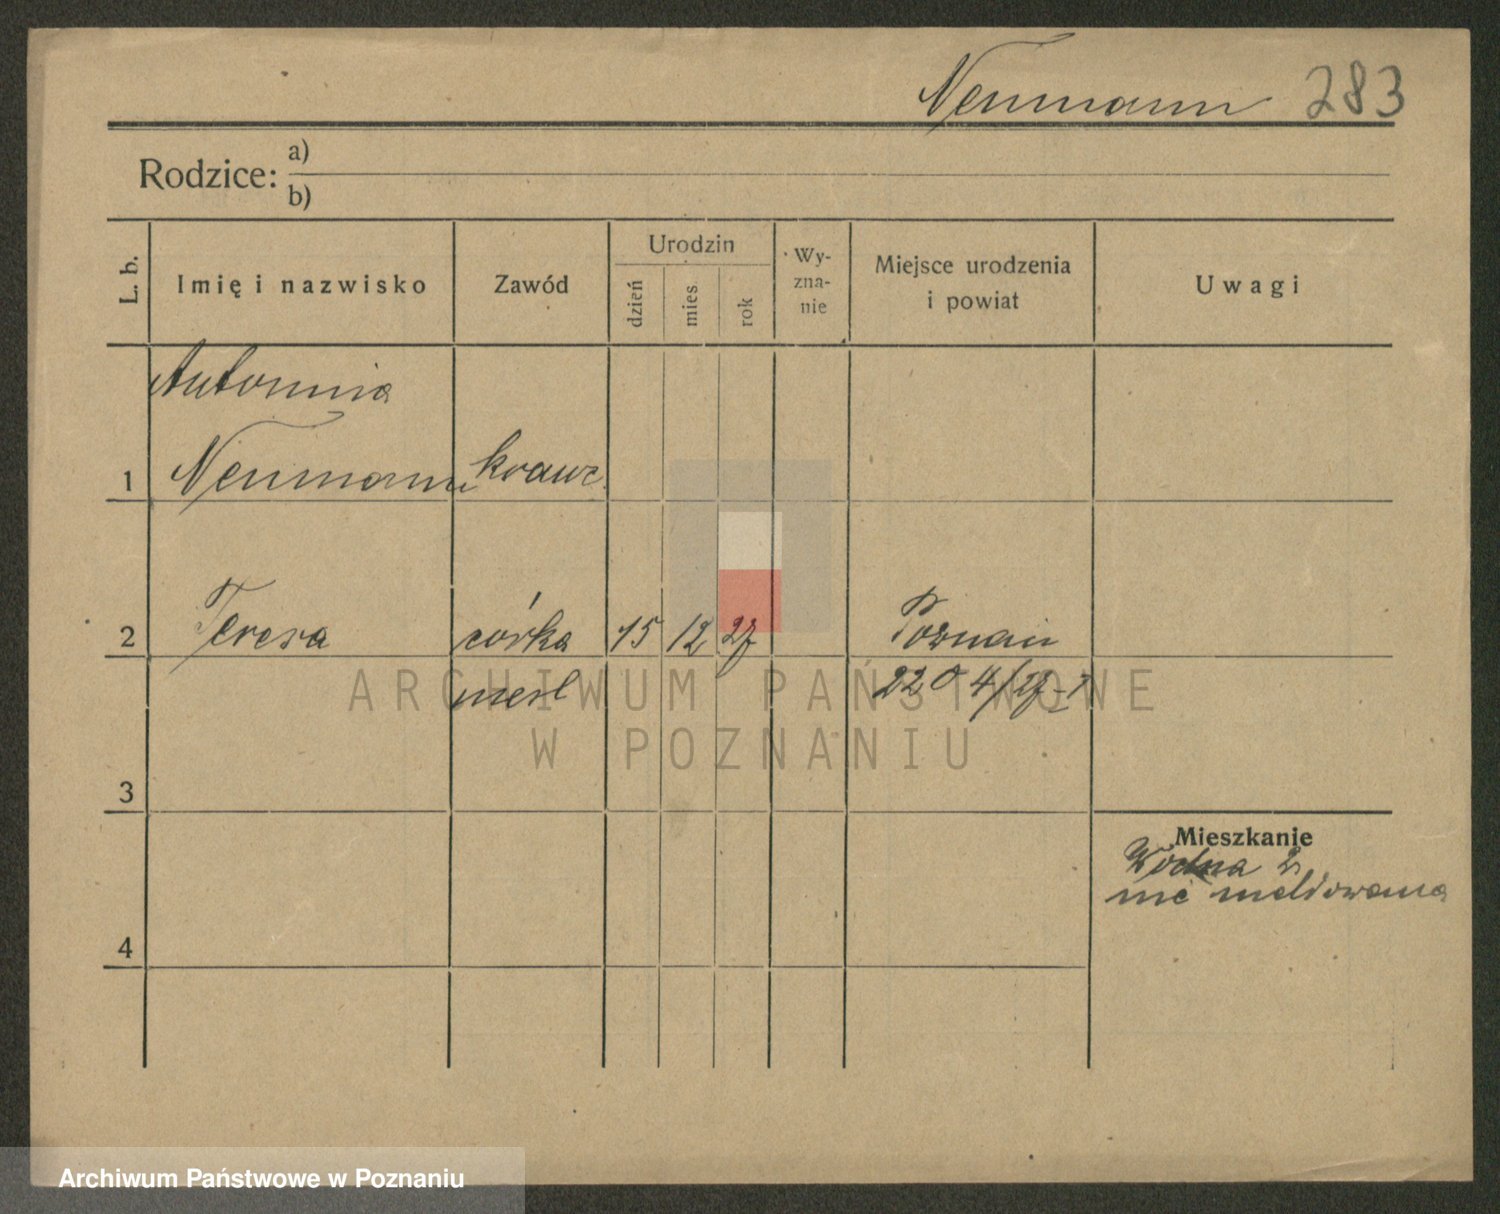 Neumann 283
Rodzice: a)
b)
L. b.
Imię i nazwisko
Zawód
Urodzin
dzień
mies.
rok
Wy-
zna-
nie
Miejsce urodzenia
i powiat
Uwagi
Antonnia
1 Neumann krawc.
2 Teresa córka 15 12 27 Poznań
nieśl
3
Mieszkanie
Wodna
nie meldowana
4
ARCHIWUM PAŃSTWOWE
W POZNANIU
Archiwum Państwowe w Poznaniu